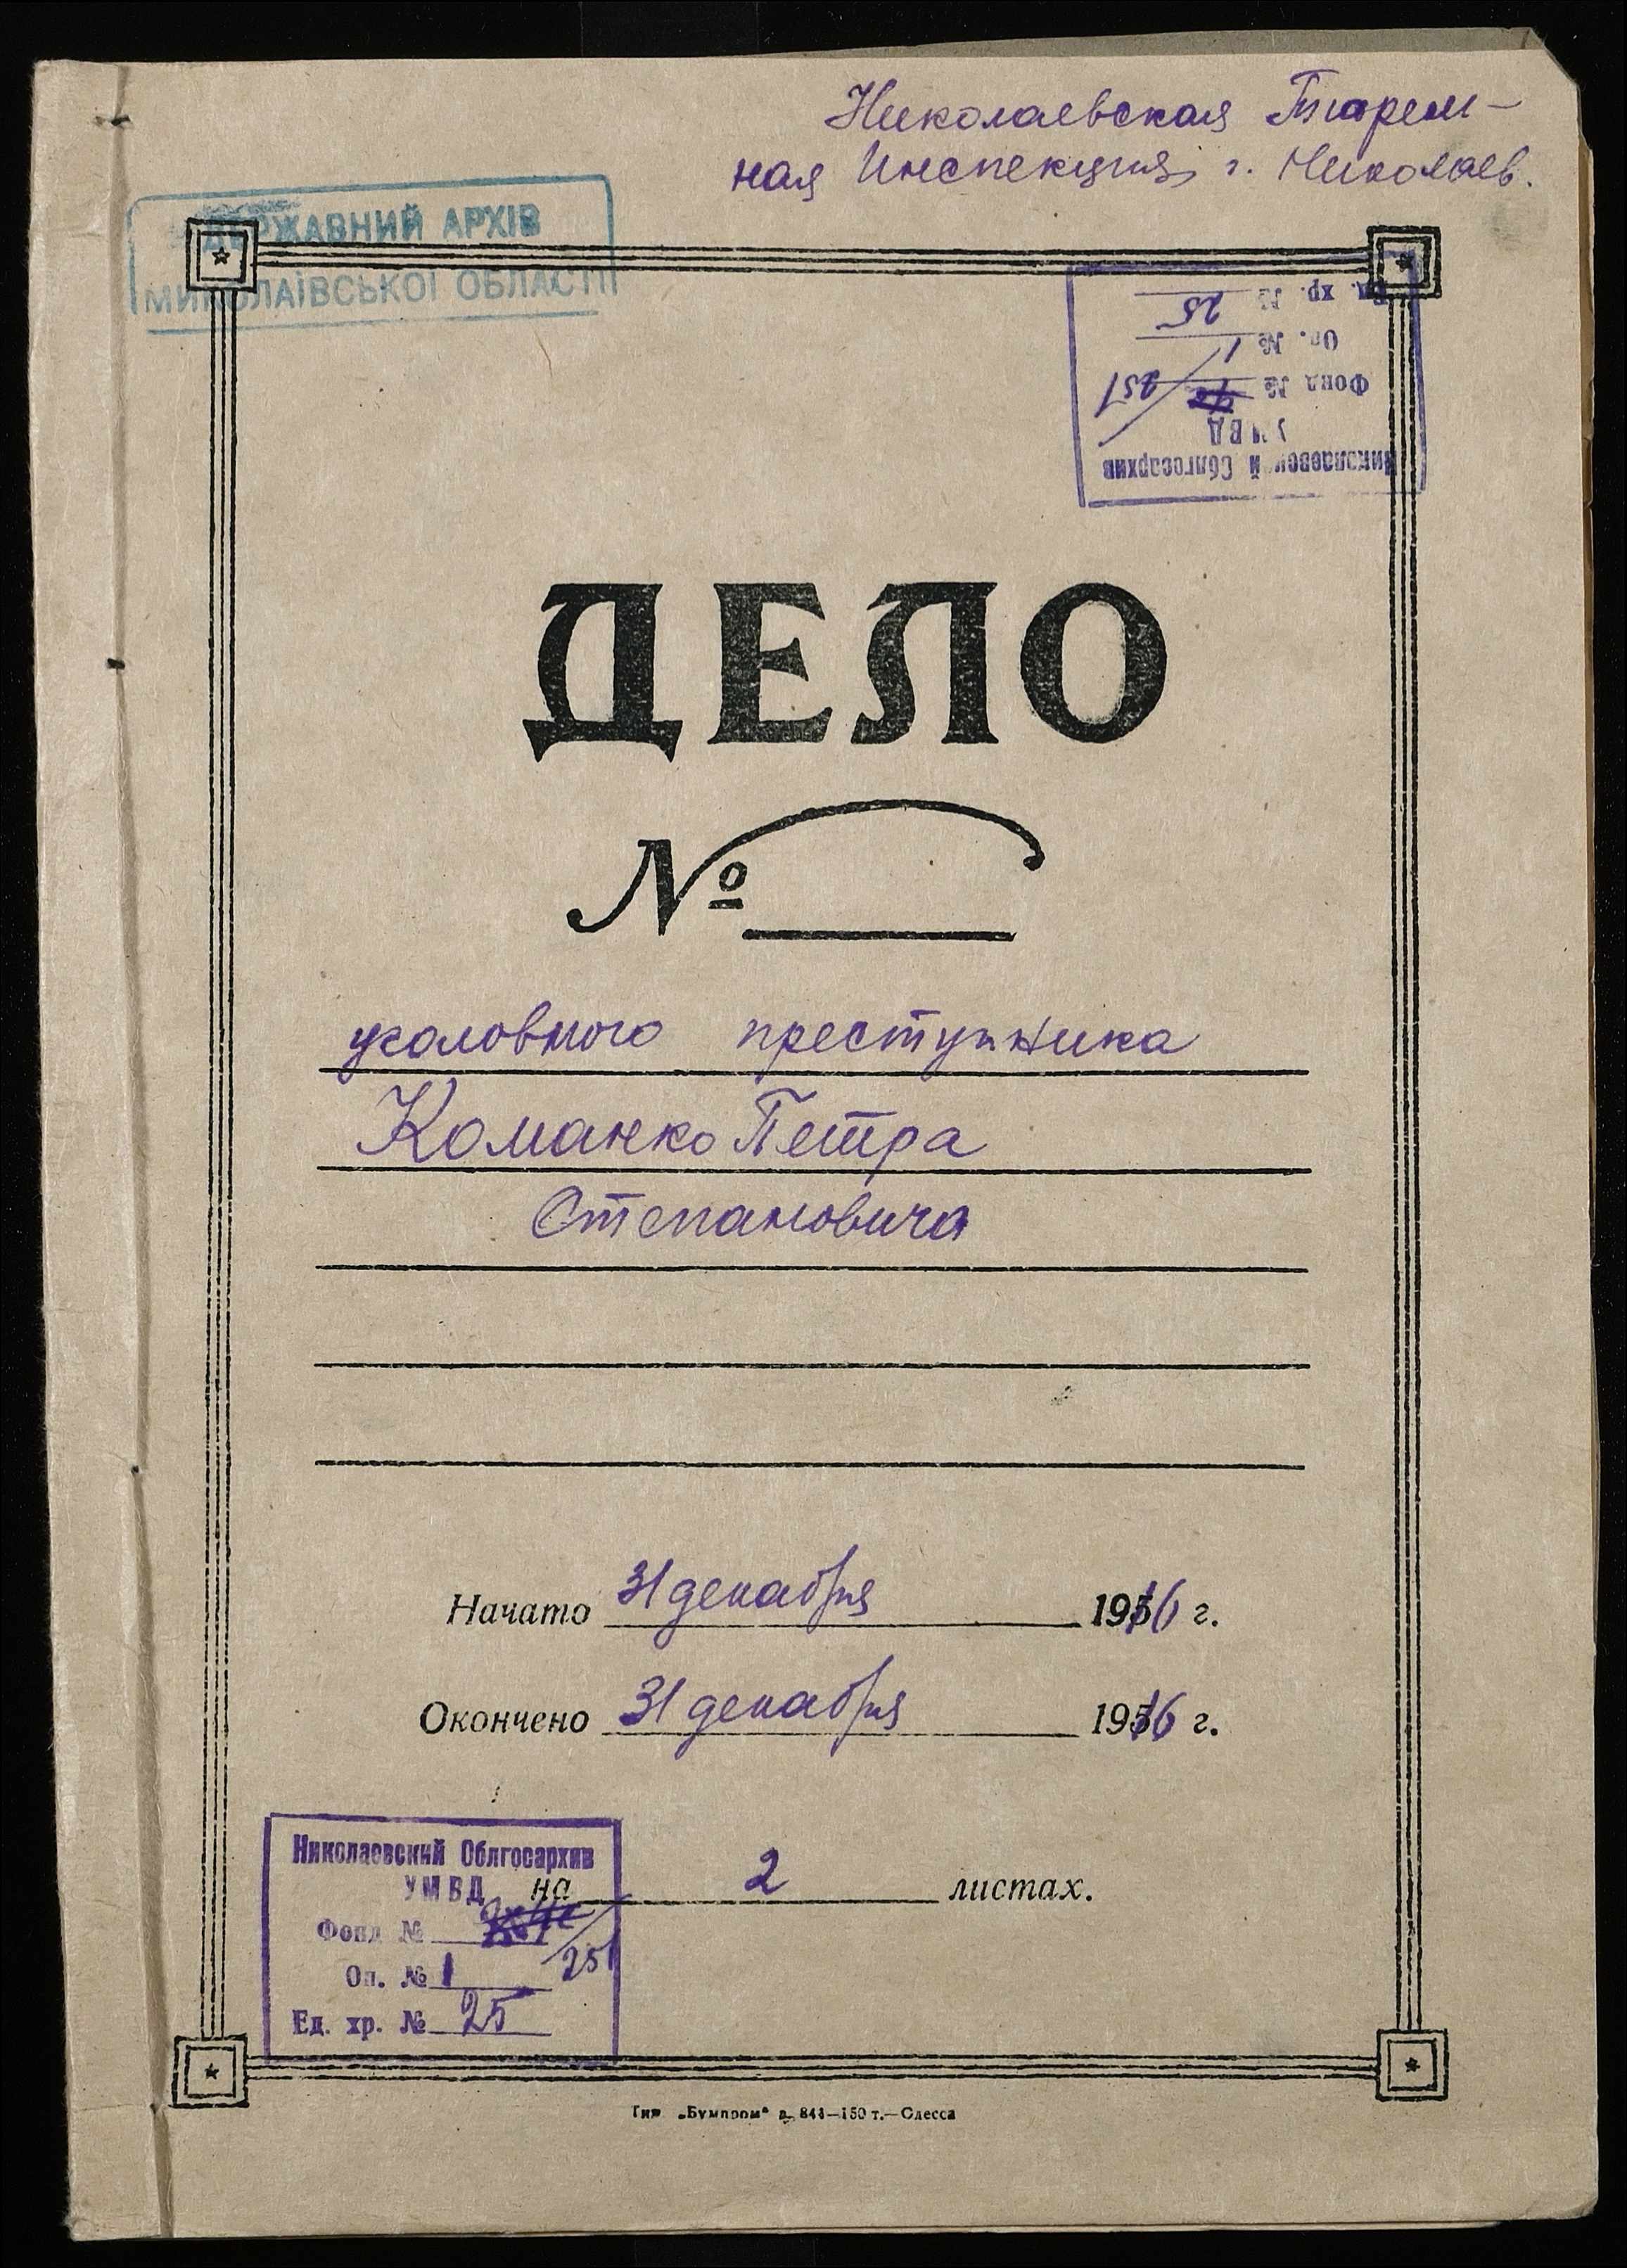 Николаевская Тюрем-
ная Инспекция, г. Николаев.
ДЕРЖАВНИЙ АРХІВ
МИКОЛАЇВСЬКОЇ ОБЛАСТІ
Николаевский Облгосархив
УМВД
Фонд № 251
Оп. № 1
Ед. хр. № 25
ДЕЛО
№
уголовного преступника
Команко Петра
Степановича
Начато 31 декабря 1916 г.
Окончено 31 декабря 1916 г.
на 2 листах.
Николаевский Облгосархив
УМВД
Фонд № 251
Оп. № 1
Ед. хр. № 25
Тип. „Бумпром“ з. 844—150 т.—Одесса